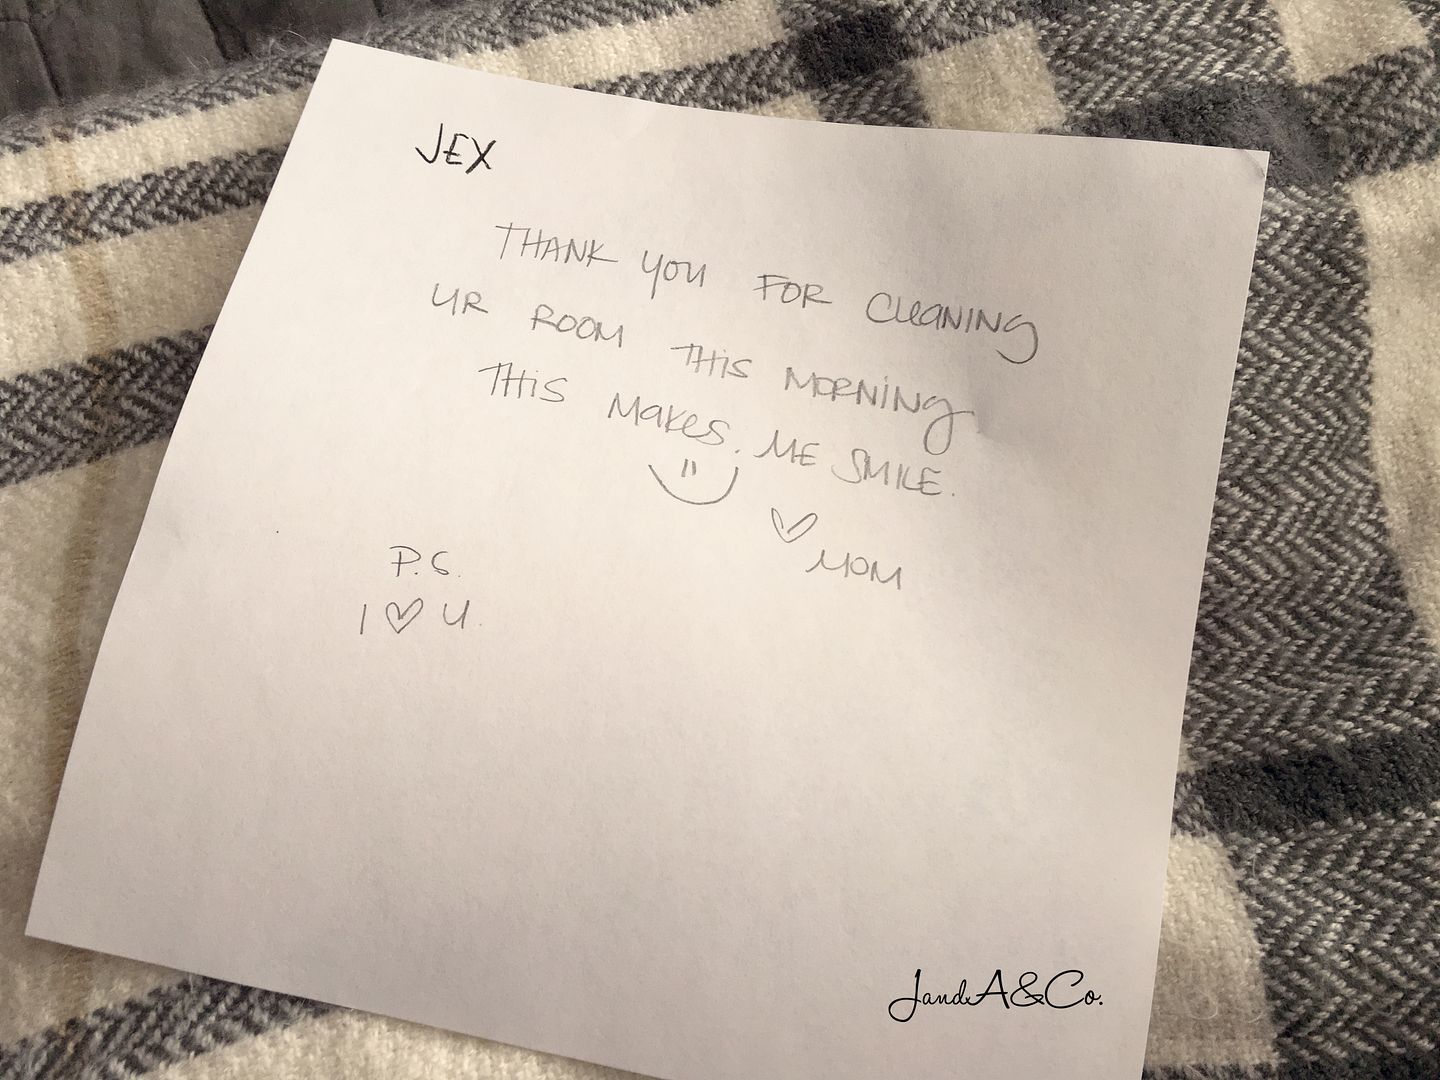 JEX
THANK YOU FOR CLEANING
UR ROOM THIS MORNING
THIS MAKES ME SMILE.
♡ MOM
P.S.
I ♡ U.
JandA&Co.